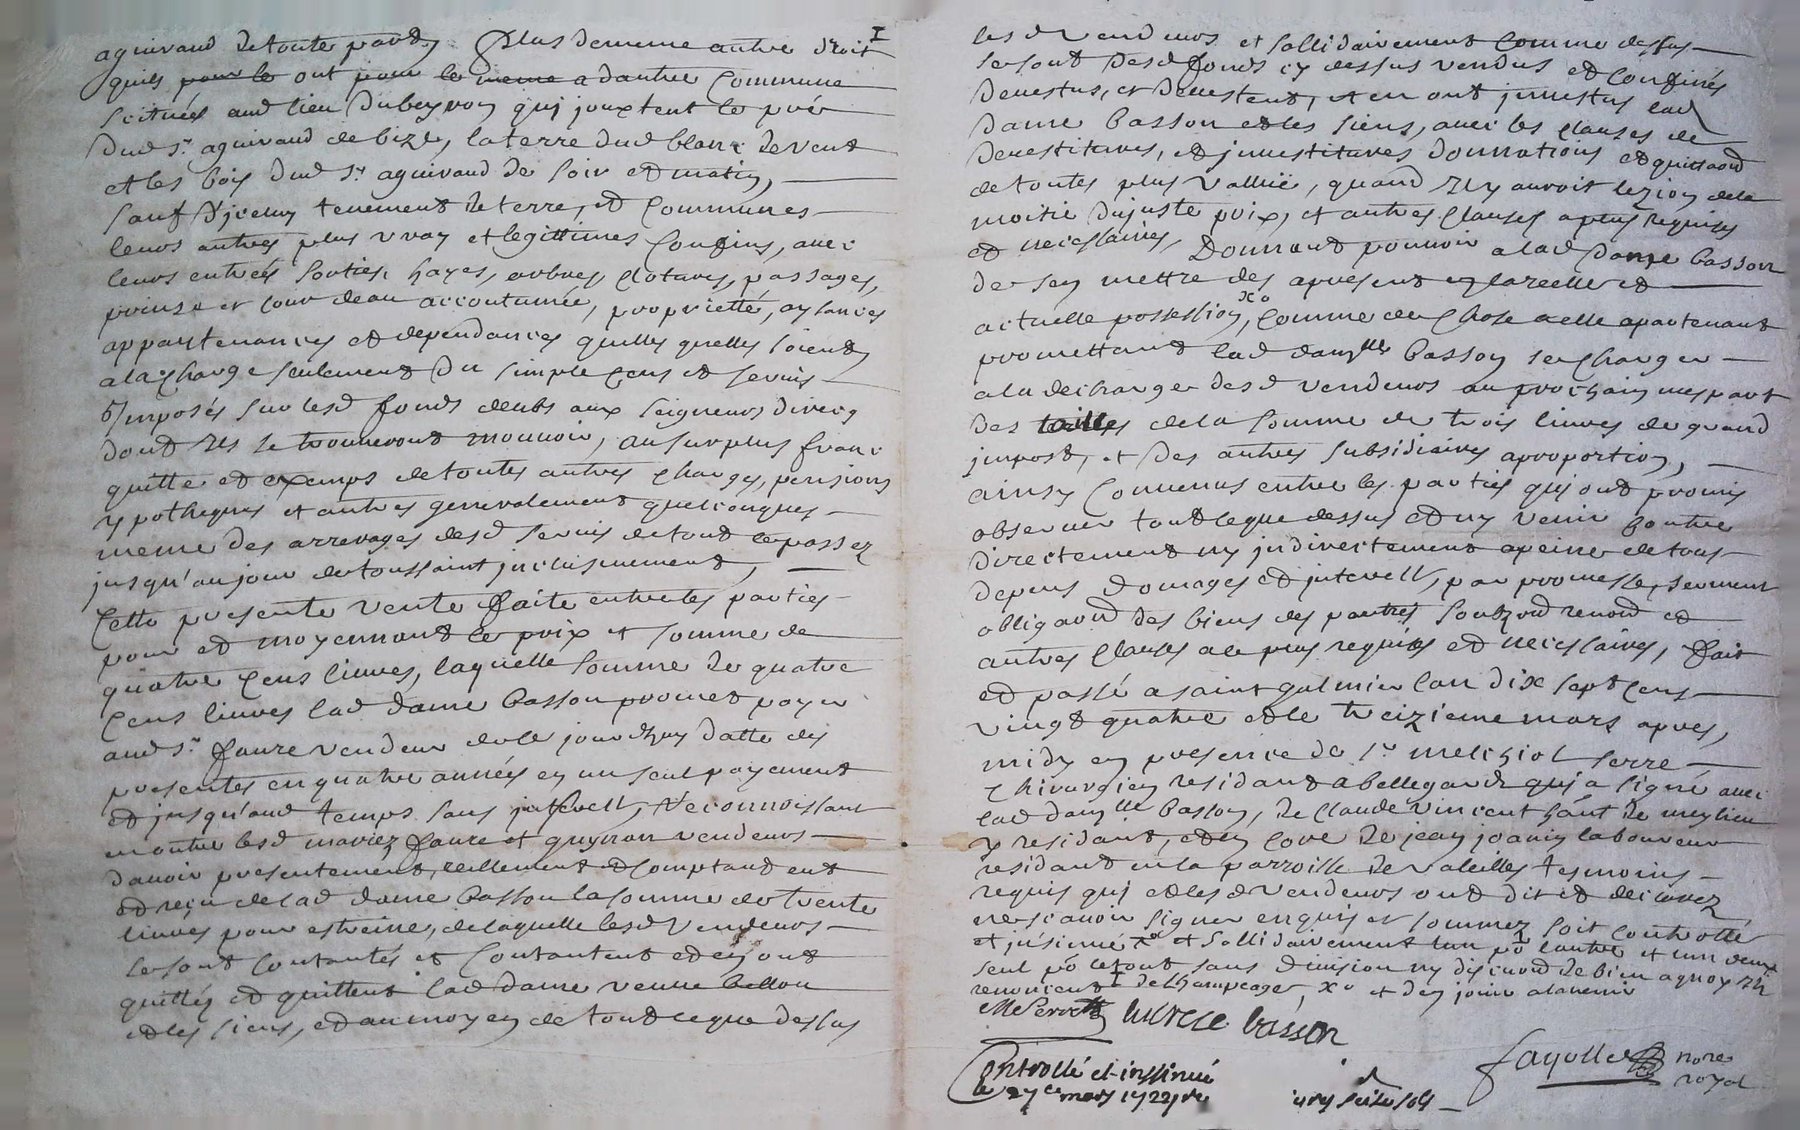 aguiraud de toute part, Plus dememe autre droit I
quils pour le ont pour le meme adautre Commune
scituées aud lieu Dubeyron quj jouxtent le pré
Dud sr aguiraud de bize, laterre dud blanc de vent
et les bois dud sr aguiraud de soir et matin,
sauf d'jceluy tenement de terre, et Communes
leurs autres plus vray et legittimes Confins, avec
leurs entrées sorties, hayes, arbres, Clotures, passages,
prinse et cour deau accoutumée, proprietté, aysances
appartenances et dependances quelles quelles soient,
ala Charge seulement Du simple Cens et servis
Imposés sur lesd fonds deubs aux seigneurs directs
dont Ils se trouveront mouvoir, ausurplus franc
quitte et exemps de toutes autres Charges, pensions
ypotheques et autres generalement quelconques
meme des arrerages desd servis de tout le passez
jusqu'aujour de toussaint jnclusivement,
Cette presente vente faite entre les parties
pour et moyennant le prix et somme de
quatre Cens livres, laquelle somme de quatre
Cens livres lad dame basson promet payer
aud sr faure vendeur de ce jourdhuy datte des
presentes en quatre années en un seul payement
et jusqu'aud temps sans jnterest, Reconnoissant
en outre lesd mariez faure et guynon vendeurs
davoir presentement, reellement et Comptant eut
et reçu de lad dame basson la somme de trente
livres pour estreine, de laquelle lesd Vendeurs
se sont Contantés et Contantent et en ont
quittés et quittent lad dame veuve bellon
et les siens, et au moyen de tout ce que dessus
lesd Vendeurs et sollidairement comme dessus
se sont Desd fonds cy dessus vendus et Confinés
Devestus, et Devestent, et en ont jnvestus lad
Dame basson et les siens, avec les Clauses de
Devestitures, et jnvestitures donnations et quittance
de toutes plus Vallue, quand Il y auroit lezion dela
moitie Dujuste prix, et autres Clauses a plus requises
et necessaires, Donnant pouvoir alad Dame basson
de sen mettre des apresent en la reelle et
actuelle possession, xo Comme de Chose a elle apartenant
promettant lad damlle basson se Charger
ala decharge desd vendeurs au prochain mespart
des tailles dela somme de trois livres de grand
jmpost, et Des autres subsidiaires aproportion,
ainsy Convenus entre les parties quj ont promis
observer tout ceque dessus et ny venir Contre
Directement ny jndirectement apeine de tous
depens Domages et jnterest, par promesse, serment
obligaon des biens des parties soubzon renon et
autres Clauses ace plus requises et necessaires, fait
et passé a saint galmier lan dix sept Cens
vingt quatre et le treizieme mars apres
midy en presence de sr melchiol serre
Chirurgien residant abellegarde quj a signé avec
lad damlle basson, de Claude vincent hant de meylieu
y residant, et en core de jean joanin laboureur
residant en la parroisse de valeilles tesmoins
requis quj et lesd vendeurs ont dit et declarez
ne scavoir signer enquis et sommez soit Controllé
et jnsinué xo et sollidairement lun po lautre et lun deux
seul po letout sans division ny discution de bien aquoy Ils
renoncent I de Champeage, xo et den jouir alavenir
lucresse basson
Controllé et inssinué
le 27e mars 1724
fayolle nore
royal